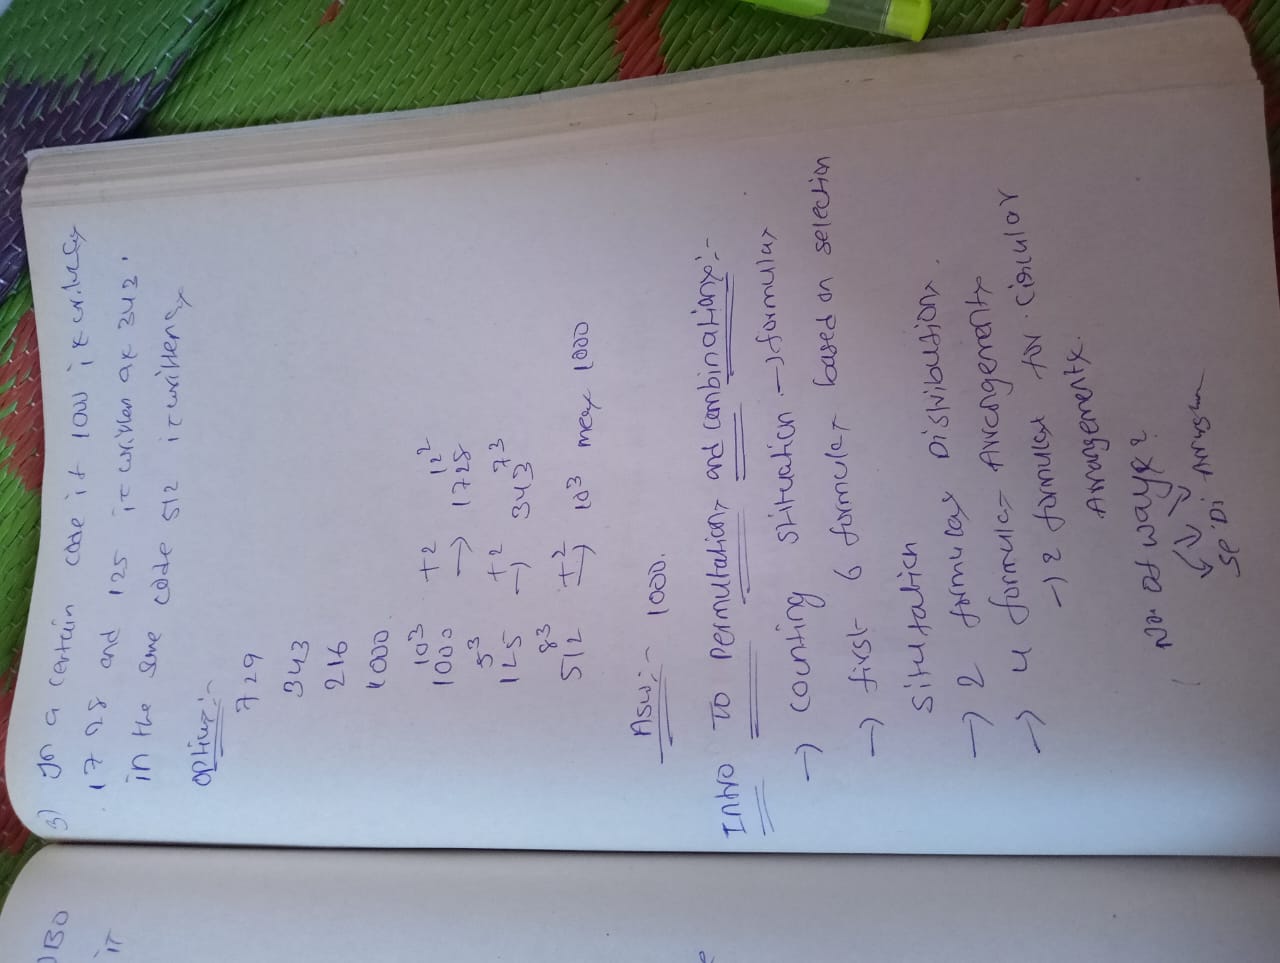 3) In a certain code if 1000 is written
1728 and 125 is written as 343.
in the same code 512 is written as
options:-
729
343
216
1000
10³ +2 12²
1000 → 1728
5³ +2 7³
125 → 343
8³ +2
512 → 10³ means 1000
Asw:- 1000.
Intro To Permutations and combinations:-
→ counting situation → formulas
→ first 6 formulas based on selection
situtation
→ 2 formulas Distribution.
→ 4 formulas Arrangements
→ 2 formulas for circular
Arrangements.
No of ways?
se Di
BO
it